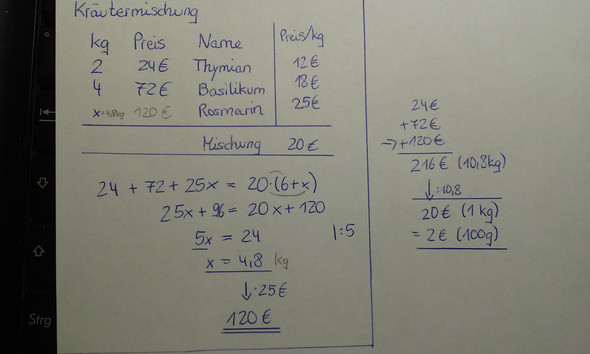 Kräutermischung
kg Preis Name Preis/kg
2 24€ Thymian 12€
4 72€ Basilikum 18€
x=4,8kg 120€ Rosmarin 25€
Mischung 20€
24 + 72 + 25x = 20·(6+x)
25x + 96 = 20x + 120
5x = 24 |:5
x = 4,8 kg
↓·25€
120€
24€
+72€
→+120€
216€ (10,8kg)
↓:10,8
20€ (1kg)
= 2€ (100g)
Strg